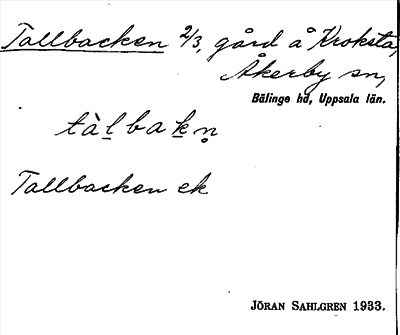 Tallbacken 2/3, gård å Kroksta,
Åkerby sn,
Bälinge hd, Uppsala län.
tàl̲bak̲n̥
Tallbacken ek
JÖRAN SAHLGREN 1933.